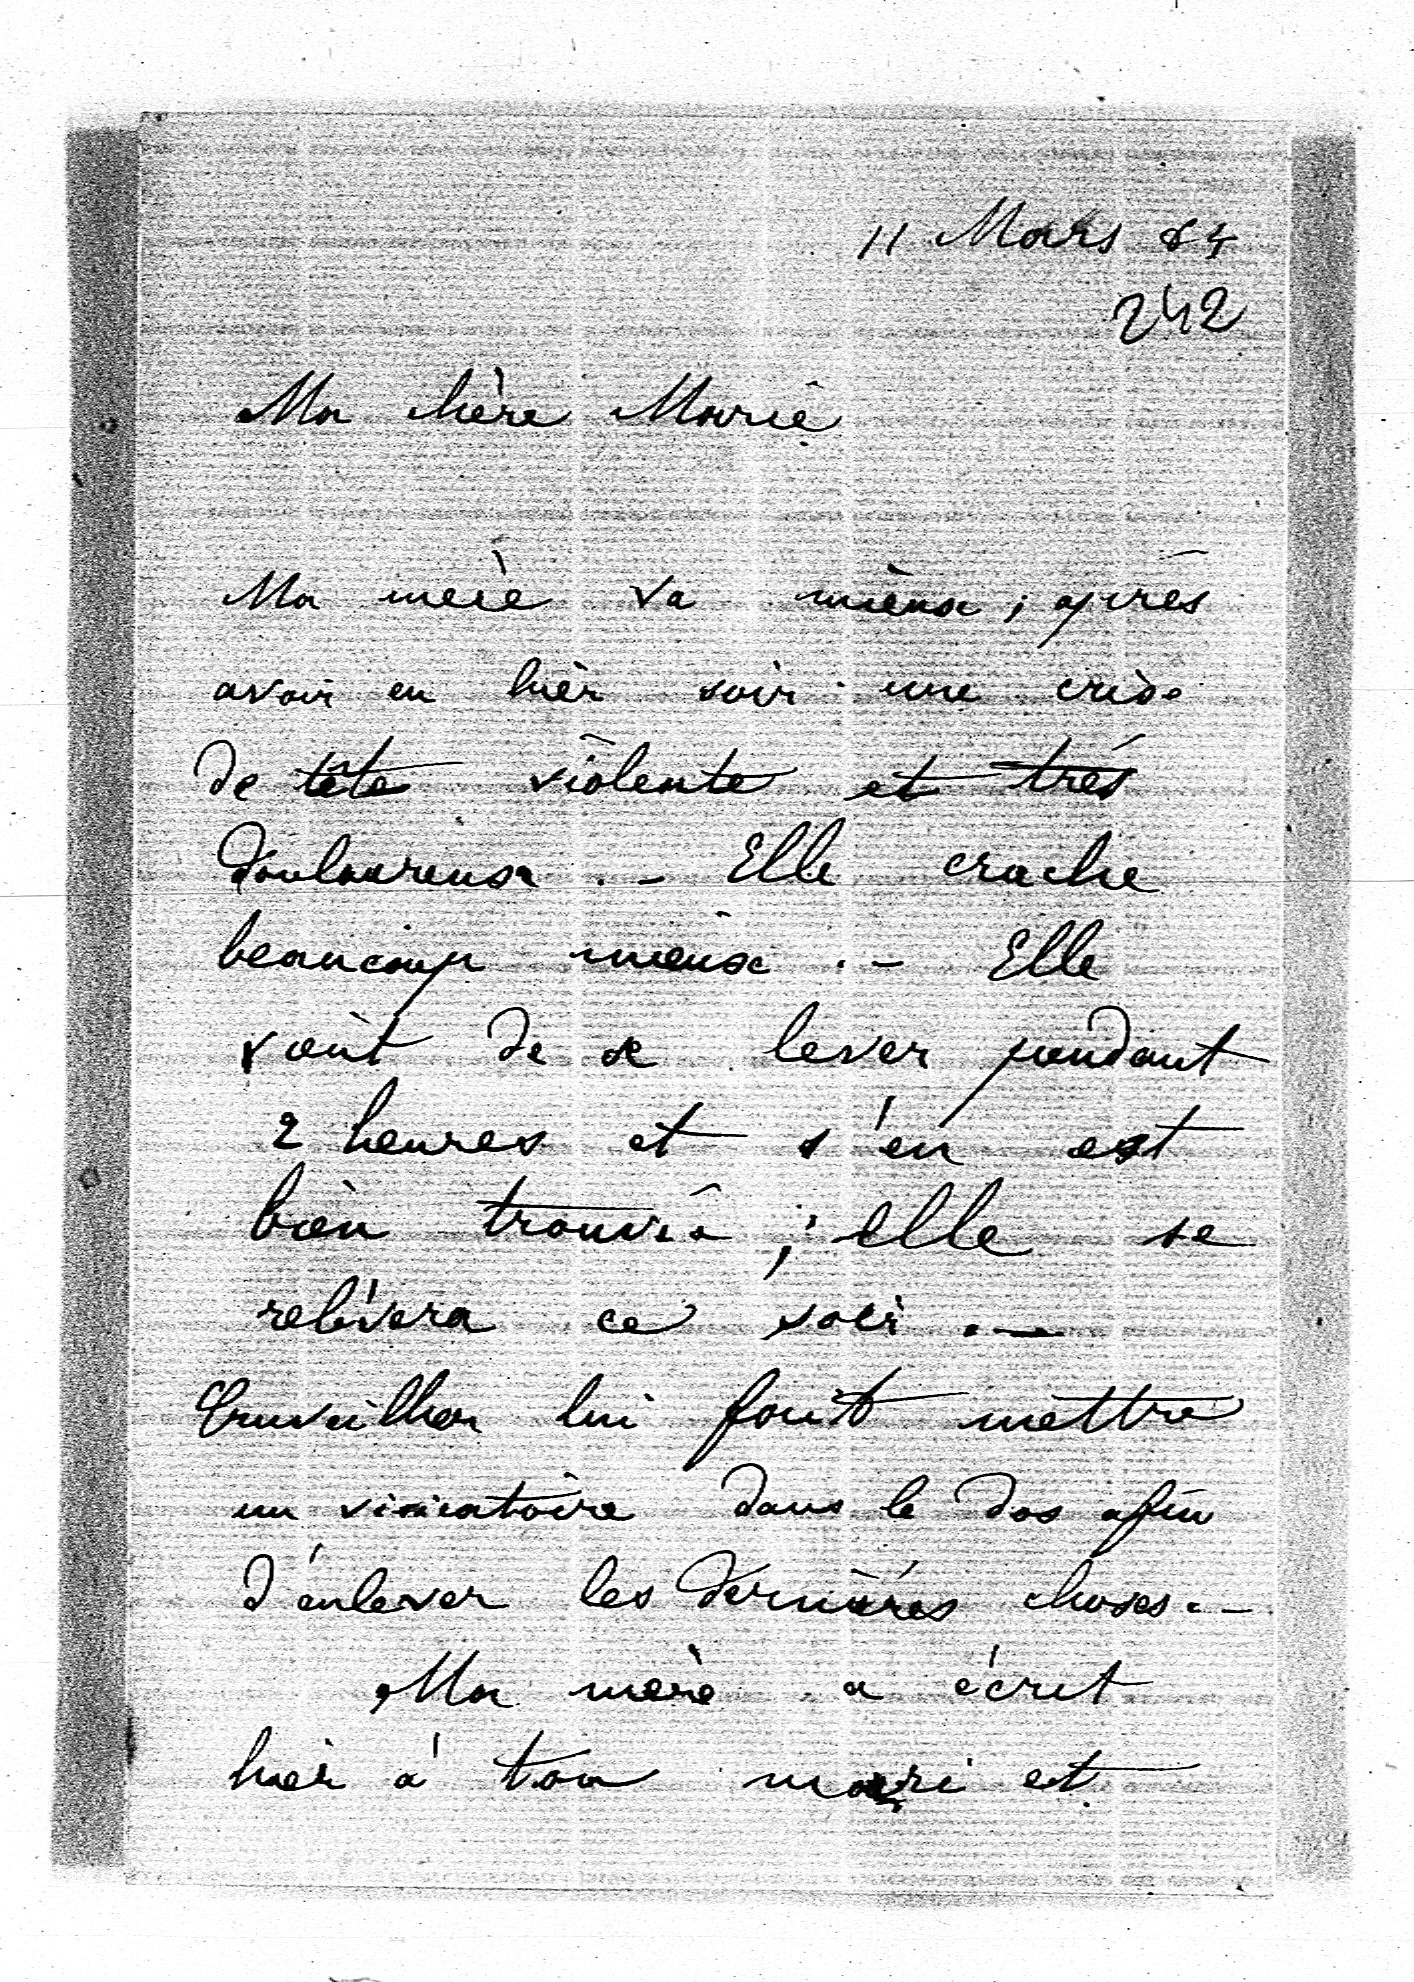 11 Mars 84
242
Ma chère Marie
Ma mère va mieux ; après
avoir eu hier soir une crise
de tête violente et très
douloureuse . – Elle crache
beaucoup mieux . – Elle
vient de se lever pendant
2 heures et s'en est
bien trouvée ; elle se
relèvera ce soir . –
Cruveilher lui fait mettre
un vésicatoire dans le dos afin
d'enlever les dernières choses . –
Ma mère a écrit
hier à ton mari et